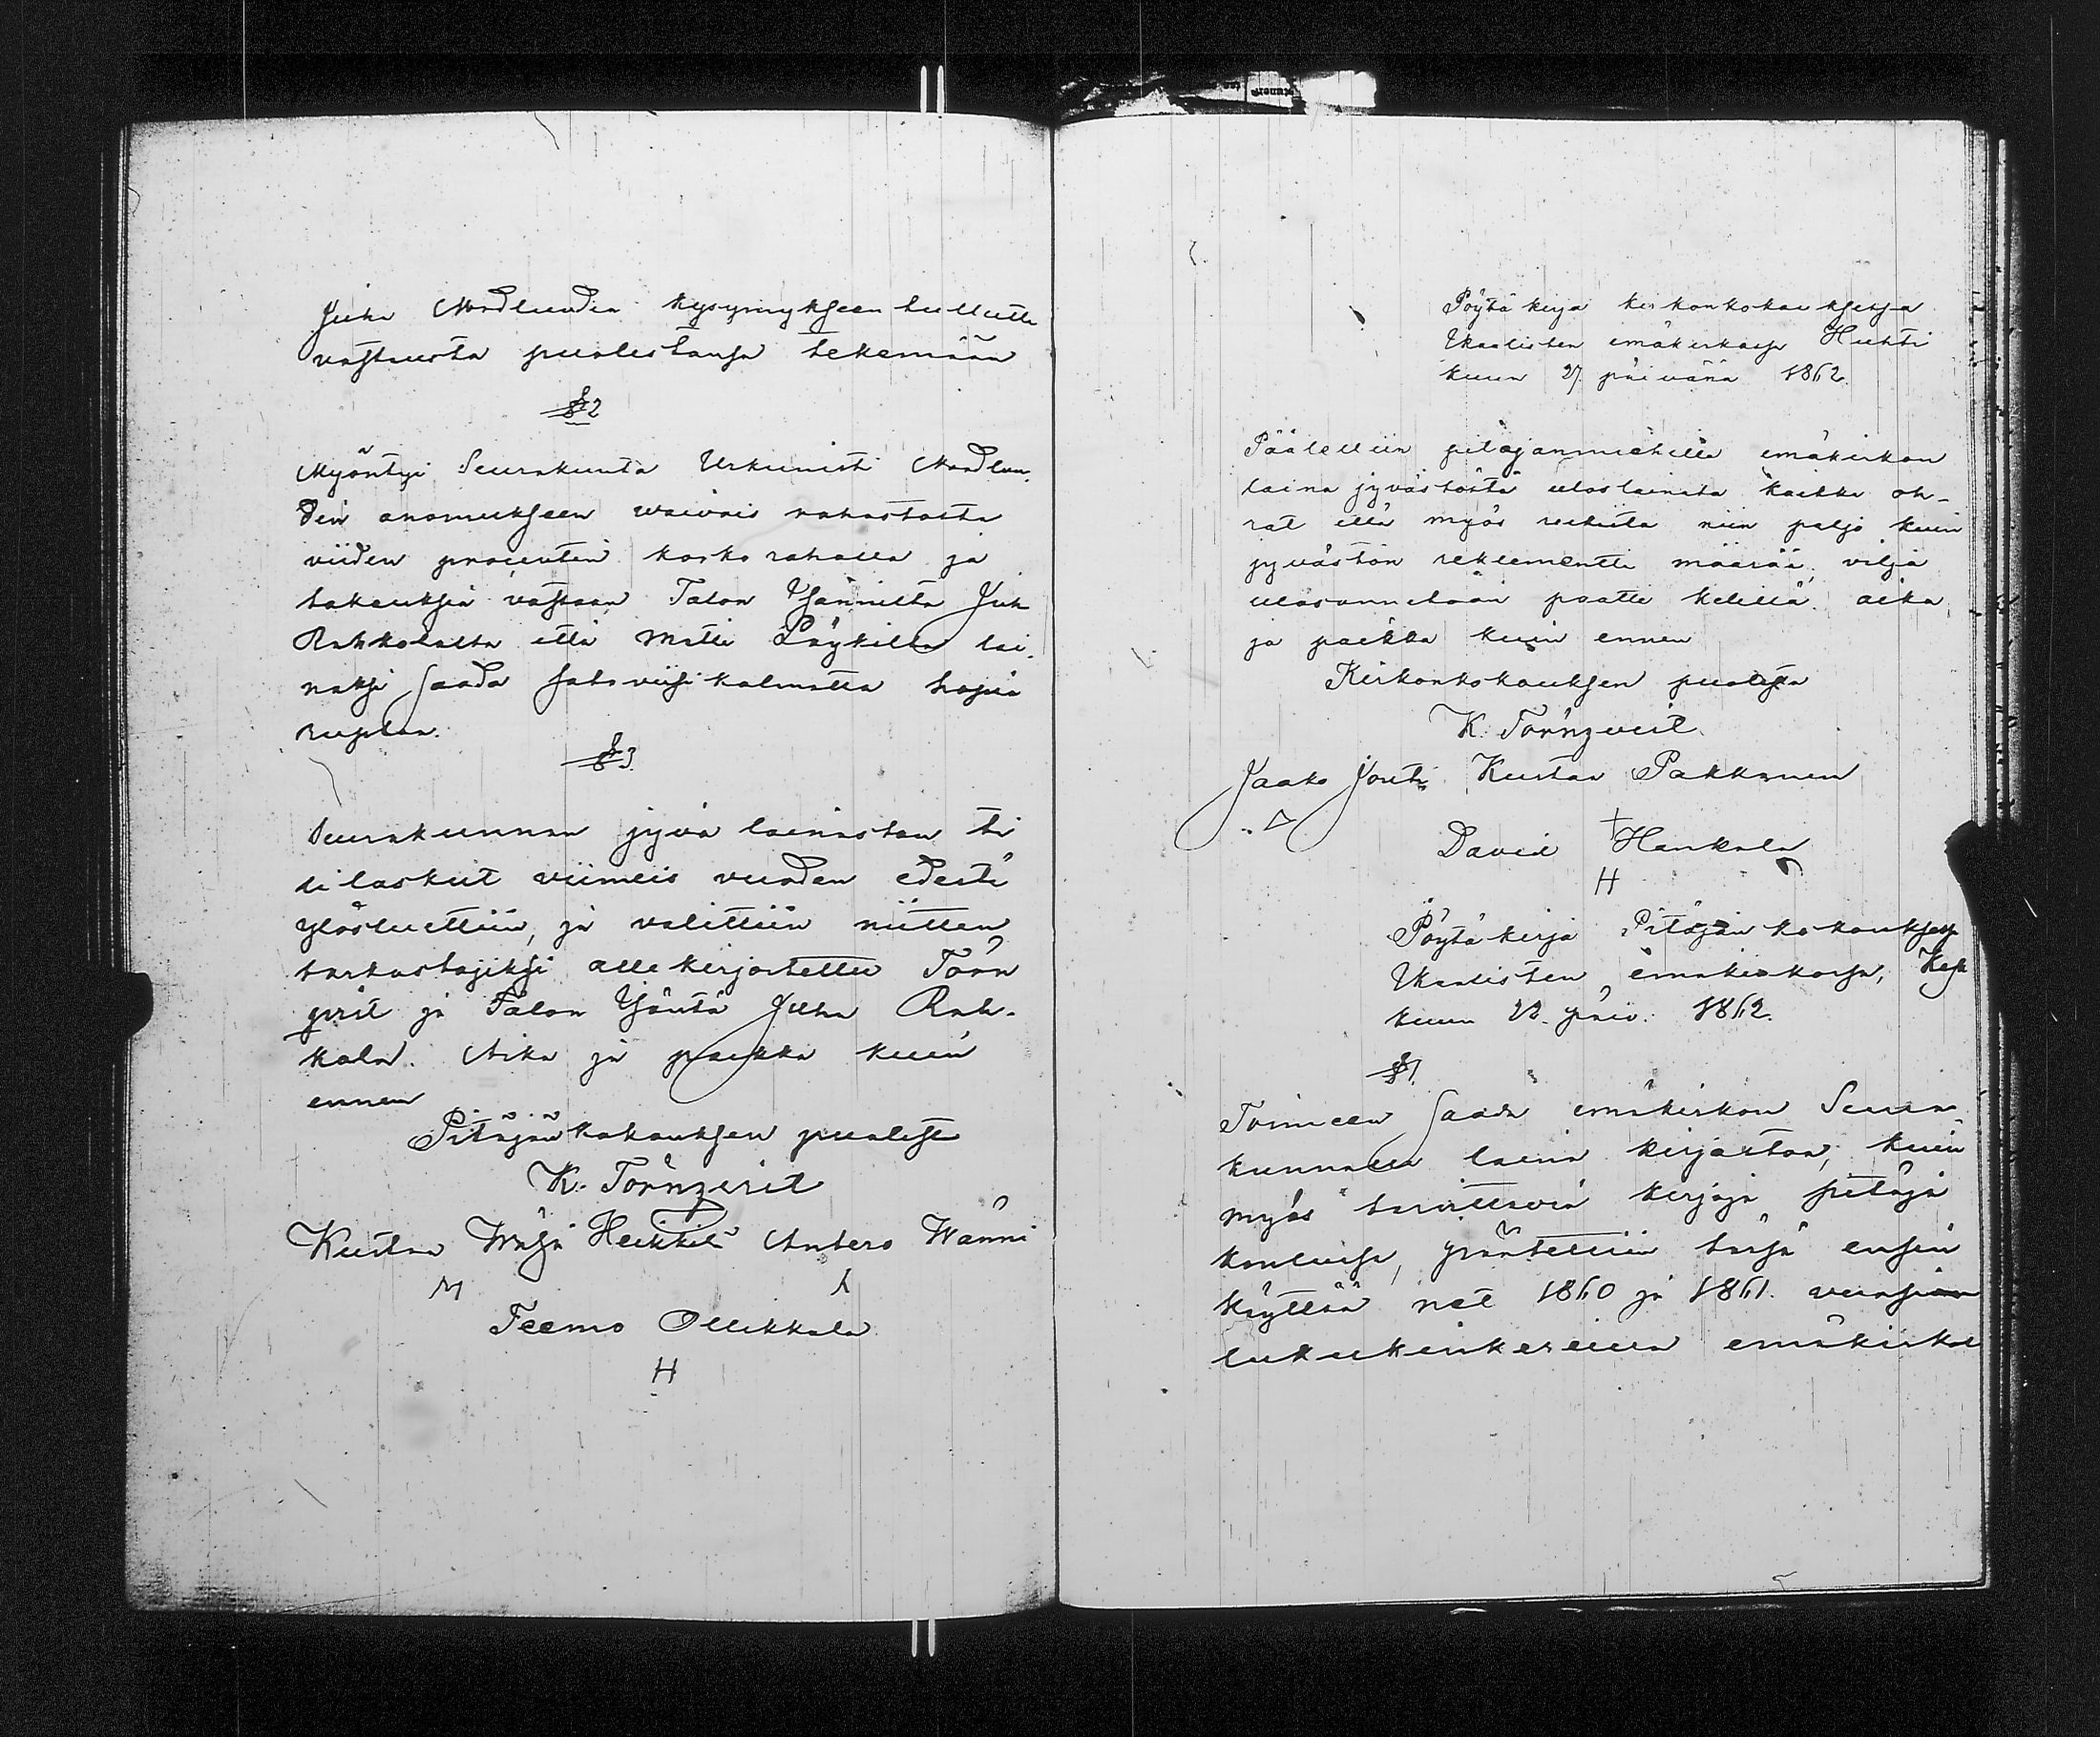 Juha Nordlundin kysymykseen tullutta
vastausta puolestansa tekemään
§ 2
Myöntyi Seurakunta Urkunisti Nordlun-
din anomukseen waivais rahastosta
viiden procentin korko rahalla ja
takauksia vastaan Talon Isänniltä Juh
Rahkolalta että Matti Löykiltä lai-
naksi saada sataviisikolmatta hopia
ruplaa.
§ 3.
Seurakunnan jyvä lainaston ti
lilaskut viimeis vuoden edestä
ylösluettiin, ja valittiin niitten
tarkastajiksi allekirjoitettu Törn
qvist ja Talon Isäntä Juha Rah-
kola. Aika ja paikka kuin
ennen
Pitäjänkokouksen puolesta
K. Törnqvist
Kustaa Heikkilä Antero Wänni
M
Teemo Ollikkala
H
Pöytäkirja kirkonkokouksessa
Ikaalisten emäkirkossa Huhti
kuun 27. päivänä 1862.
Päätettiin pitäjänmiehille emäkirkon
laina jyvästöstä uloslainata kaikki oh-
rat että myös rukiita niin paljo kuin
jyvästön reklementti määrää, vilja
ulosannetaan paatti kelillä. aika
ja paikka kuin ennen
Kirkonkokouksen puolesta
K. Törnqvist.
Jaako Jouti Kustaa Pakkanen
David Hankala
H
Pöytäkirja Pitäjänkokouksessa
Ikaalisten emäkirkossa, Kesä
kuun 22. päiv. 1862.
§ 1.
Toimeen saada emäkirkon Seura-
kunnalla laina kirjaston, kuin
myös tarvittavia kirjoja pitäjä
kouluissa, päätettiin tässä ensin
käyttää net 1860 ja 1861. vuosien
lukukinkereillä emäkirkol